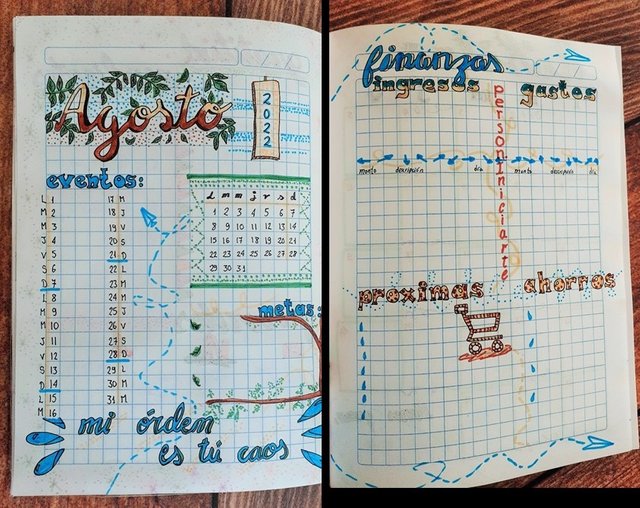 Agosto
2022
eventos:
L 1 17 M
M 2 18 J
M 3 19 V
J 4 20 S
V 5 21 D
S 6 22 L
D 7 23 M
L 8 24 M
M 9 25 J
M 10 26 V
J 11 27 S
V 12 28 D
S 13 29 L
D 14 30 M
L 15 31 M
M 16
l m m j v s d
1 2 3 4 5 6 7
8 9 10 11 12 13 14
15 16 17 18 19 20 21
22 23 24 25 26 27 28
29 30 31
metas:
mi órden
es tú caos
finanzas
ingresos gastos
personIniciarte
monto día monto día
proximas ahorros